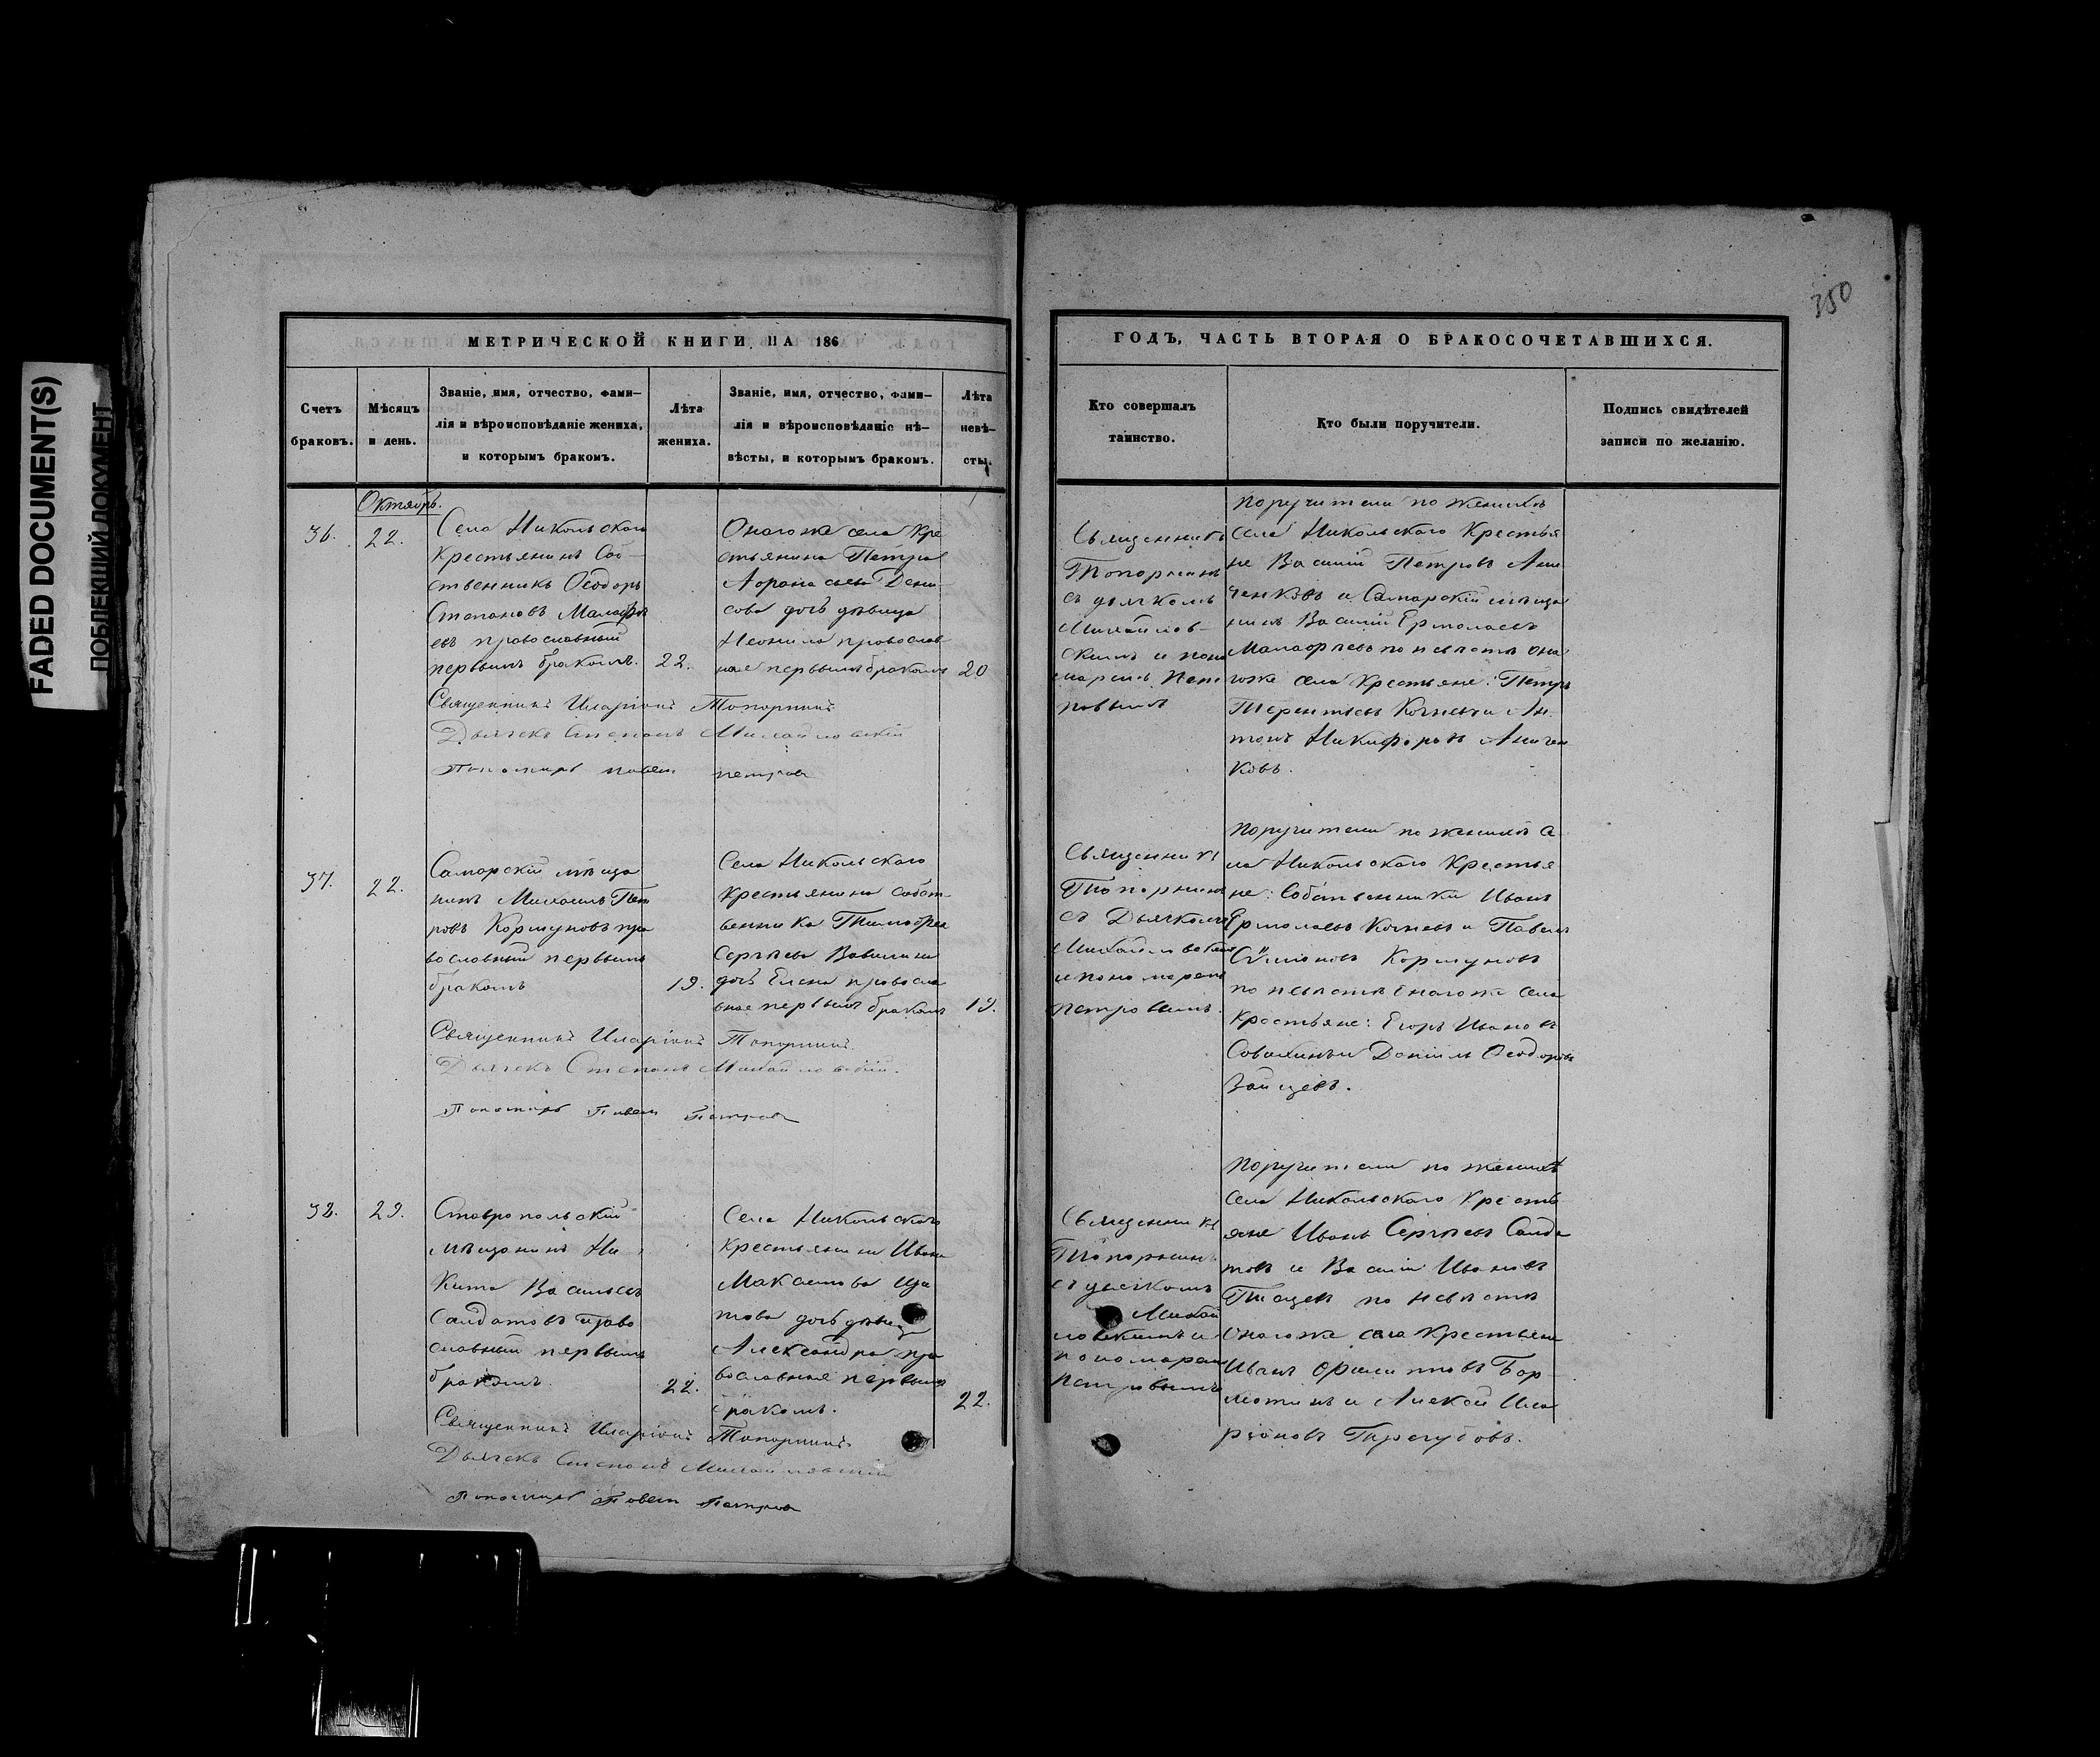 FADED DOCUMENT(S)
ПОБЛЕКШИЙ ДОКУМЕНТ
350
МЕТРИЧЕСКОЙ КНИГИ НА 186
Счетъ браковъ.
Мѣсяцъ и день.
Званіе, имя, отчество, фами-
лія и вѣроисповѣданіе жениха,
и которымъ бракомъ.
Лѣта жениха.
Званіе, имя, отчество, фами-
лія и вѣроисповѣданіе не-
вѣсты, и которымъ бракомъ.
Лѣта
невѣ-
сты.
Октябрь.
36.
22.
Села Никольскаго
Крестьянинъ Соб-
ственникъ Ѳеодоръ
Степановъ Малафѣ
евъ православный
первымъ бракомъ.
22.
Онагоже села Кре
стьянина Петра
Дени-
сова дочь дѣвица
Неонила православ
ная первымъ бракомъ
20
Священникъ Иларіонъ Топорнинъ
Дьячекъ Степанъ Михайловскій
Пономарь Павелъ Петровъ
37.
22.
Самарскій мѣща
нинъ Михаилъ Пет
ровъ Коршуновъ пра
вославный первымъ
бракомъ
19.
Села Никольскаго
крестьянина собст-
венника Тимофея
Сергѣева Вавилина
дочь Елена правосла
вная первымъ бракомъ
19.
Священникъ Иларіонъ Топорнинъ
Дьячекъ Степанъ Михайловскій.
Пономарь Павелъ Петровъ
38.
29.
Ставропольскій
мѣщанинъ Ни
кита Васильевъ
Салдатовъ право
славный первымъ
бракомъ.
22.
Села Никольскаго
крестьянина Ивана
Максимова
дочь дѣвица
Александра пра
вославная первымъ
бракомъ.
22.
Священникъ Иларіонъ Топорнинъ
Дьячекъ Степанъ Михайловскій
Пономарь Павелъ Петровъ
ГОДЪ, ЧАСТЬ ВТОРАЯ О БРАКОСОЧЕТАВШИХСЯ.
Кто совершалъ
таинство.
Кто были поручители.
Подпись свидѣтелей
записи по желанію.
Священникъ
Топорнинъ
съ дьячкомъ
Михайлов-
скимъ и поно
маремъ Пет
ровымъ
Поручители по женихѣ
села Никольскаго Крестья
не Василій Петровъ Ани
ченковъ и Самарскій мѣща
нинъ Василій Ермолаевъ
Малафѣевъ по невѣстѣ она
гоже села Крестьяне: Петръ
Терентьевъ Кочневъ и Ан
тонъ Никифоровъ Аничен
ковъ.
Священникъ
Топорнинъ
съ Дьячкомъ
Михайловскимъ
и пономаремъ
Петровымъ.
Поручители по женихѣ се
ла Никольскаго Крестья
не: Собственники Иванъ
Ермолаевъ Кочневъ и Павелъ
Коршуновъ
по невѣстѣ онагоже села
Крестьяне: Егоръ Ивановъ
и Данилъ Ѳеодоровъ
Зайцевъ.
Священникъ
Топорнинъ
съ дьячкомъ
Михай
ловскимъ и
пономаремъ
Петровымъ
Поручители по женихѣ
села Никольскаго Кресть
яне Иванъ Сергѣевъ Салда
товъ и Василій Ивановъ
по невѣстѣ
онагоже села Крестьяне
Иванъ Филиповъ Бор
мотинъ и Алексѣй Ила
ріоновъ